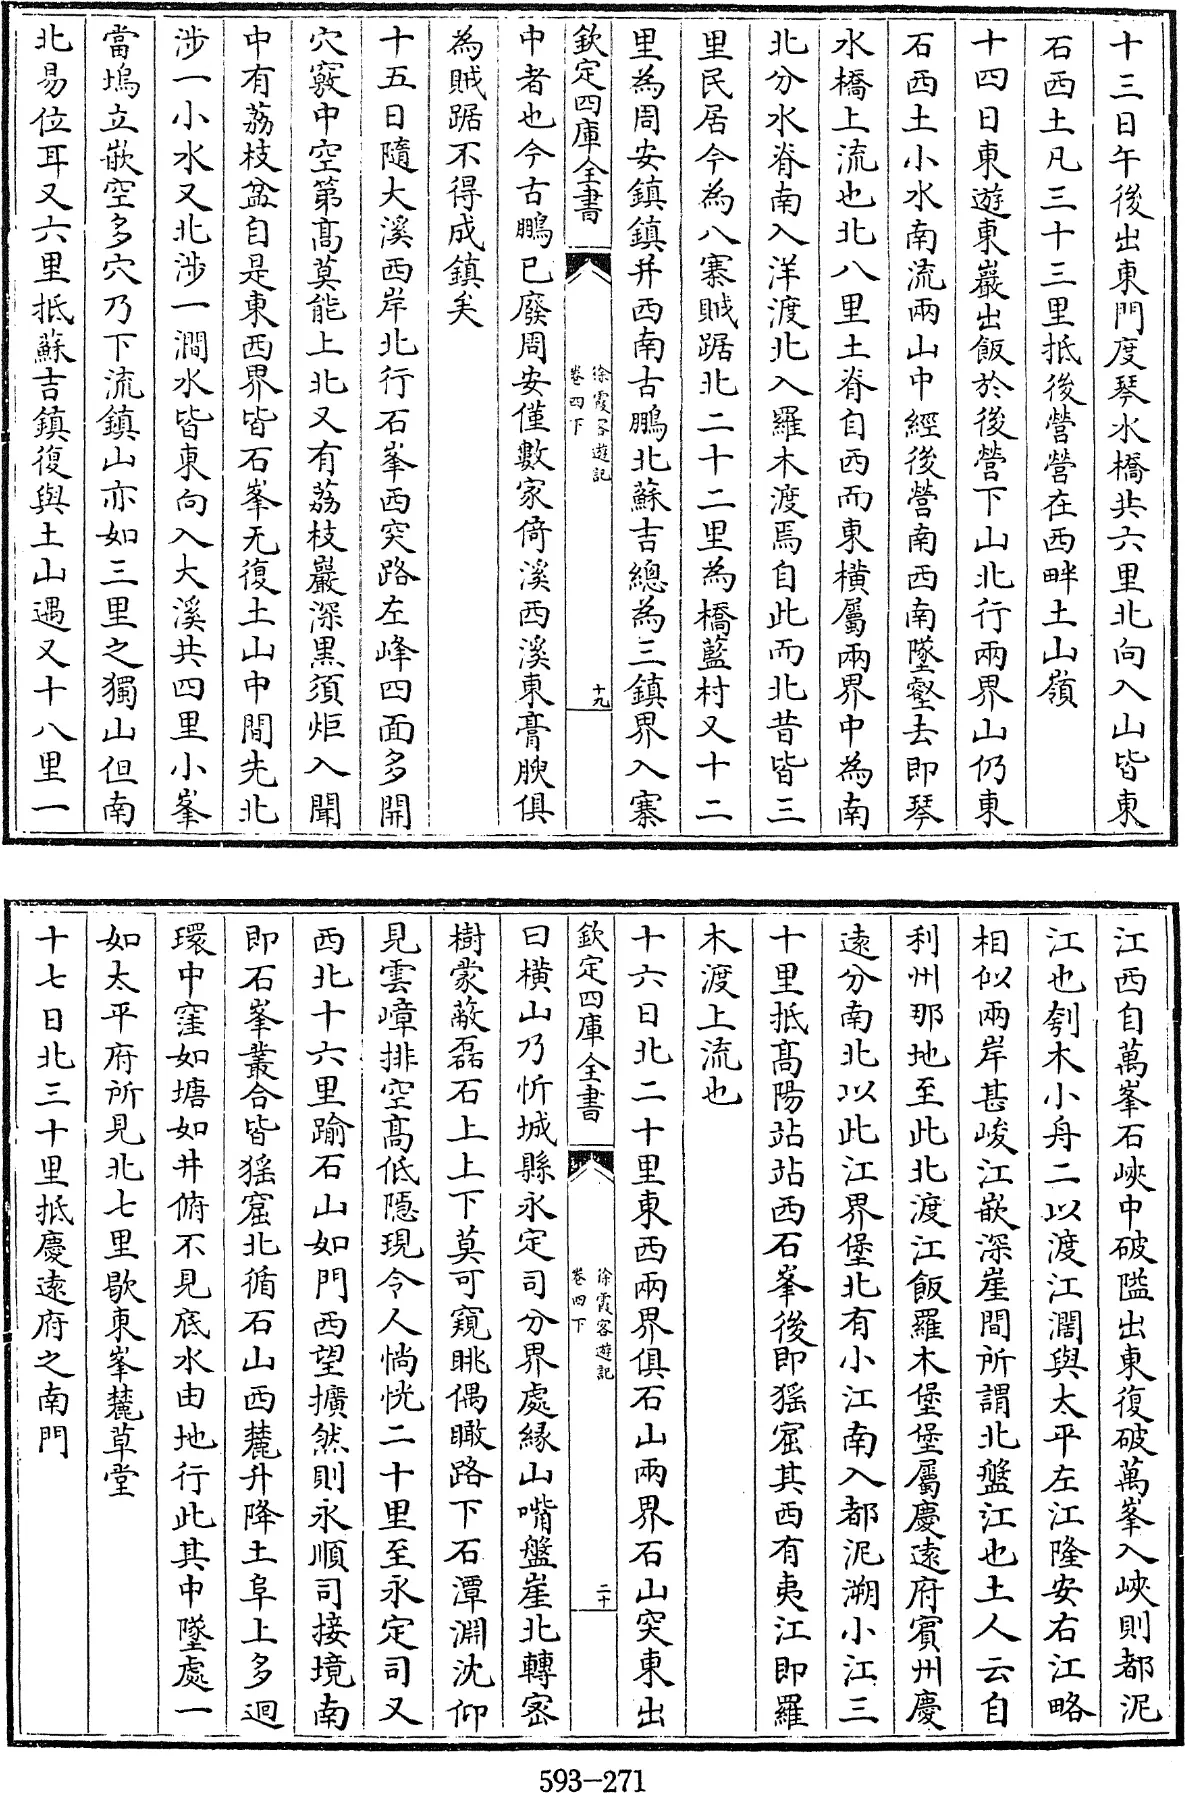 十三日午後出東門度琴水橋共六里北向入山皆東
石西土凡三十三里抵後營營在西畔土山嶺
十四日東遊東巖出飯於後營下山北行兩界山仍東
石西土小水南流兩山中經後營南西南墜壑去即琴
水橋上流也北八里土脊自西而東橫屬兩界中為南
北分水脊南入洋渡北入羅木渡焉自此而北昔皆三
里民居今為八寨賊踞北二十二里為橋藍村又十二
里為周安鎮鎮并西南古鵬北蘇吉總為三鎮界入寨
欽定四庫全書
徐霞客遊記
卷四下
十九
中者也今古鵬已廢周安僅數家倚溪西溪東膏腴俱
為賊踞不得成鎮矣
十五日隨大溪西岸北行石峯西突路左峰四面多開
穴竅中空第高莫能上北又有荔枝巖深黑須炬入聞
中有荔枝盆自是東西界皆石峯无復土山中間先北
涉一小水又北涉一澗水皆東向入大溪共四里小峯
當塢立嵌空多穴乃下流鎮山亦如三里之獨山但南
北易位耳又六里抵蘇吉鎮復與土山遇又十八里一
江西自萬峯石峽中破隘出東復破萬峯入峽則都泥
江也刳木小舟二以渡江濶與太平左江隆安右江略
相似兩岸甚峻江嵌深崖間所謂北盤江也土人云自
利州那地至此北渡江飯羅木堡堡屬慶遠府賓州慶
遠分南北以此江界堡北有小江南入都泥溯小江三
十里抵高陽站站西石峯後即猺窟其西有夷江即羅
木渡上流也
十六日北二十里東西兩界俱石山兩界石山突東出
欽定四庫全書
徐霞客遊記
卷四下
二十
曰橫山乃忻城縣永定司分界處緣山嘴盤崖北轉密
樹蒙蔽磊石上上下莫可窺眺偶瞰路下石潭淵沈仰
見雲嶂排空高低隱現令人惝恍二十里至永定司又
西北十六里踰石山如門西望擴然則永順司接境南
即石峯叢合皆猺窟北循石山西麓升降土阜上多迴
環中窪如塘如井俯不見底水由地行此其中墜處一
如太平府所見北七里歇東峯麓草堂
十七日北三十里抵慶遠府之南門
593-271